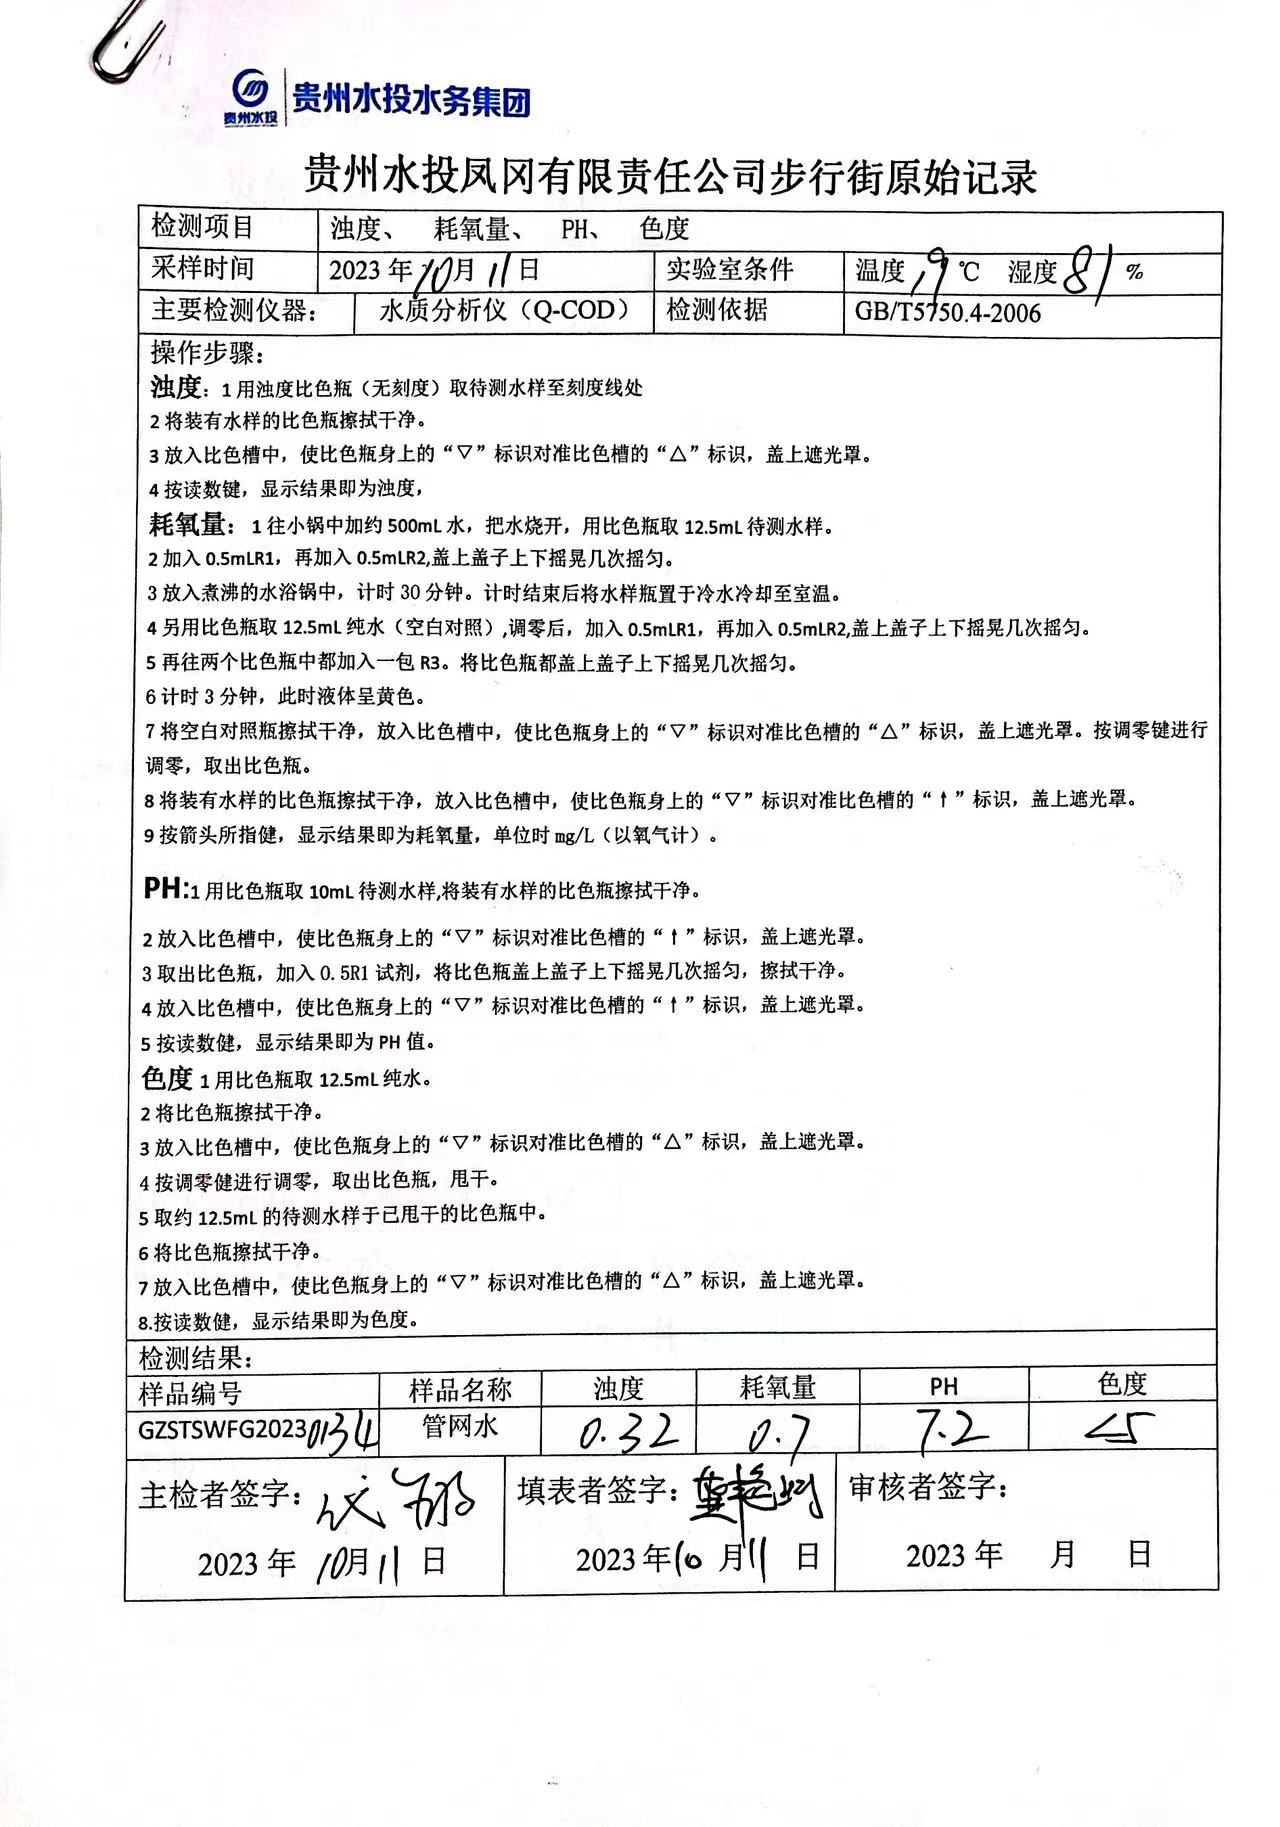 贵州水投
贵州水投水务集团
贵州水投凤冈有限责任公司步行街原始记录
检测项目 浊度、 耗氧量、 PH、 色度
采样时间 2023年10月11日 实验室条件 温度19℃ 湿度81%
主要检测仪器： 水质分析仪（Q-COD） 检测依据 GB/T5750.4-2006
操作步骤：
浊度：1用浊度比色瓶（无刻度）取待测水样至刻度线处
2将装有水样的比色瓶擦拭干净。
3放入比色槽中，使比色瓶身上的“▽”标识对准比色槽的“△”标识，盖上遮光罩。
4按读数键，显示结果即为浊度，
耗氧量：1往小锅中加约500mL水，把水烧开，用比色瓶取12.5mL待测水样。
2加入0.5mLR1，再加入0.5mLR2,盖上盖子上下摇晃几次摇匀。
3放入煮沸的水浴锅中，计时30分钟。计时结束后将水样瓶置于冷水冷却至室温。
4另用比色瓶取12.5mL纯水（空白对照）,调零后，加入0.5mLR1，再加入0.5mLR2,盖上盖子上下摇晃几次摇匀。
5再往两个比色瓶中都加入一包R3。将比色瓶都盖上盖子上下摇晃几次摇匀。
6计时3分钟，此时液体呈黄色。
7将空白对照瓶擦拭干净，放入比色槽中，使比色瓶身上的“▽”标识对准比色槽的“△”标识，盖上遮光罩。按调零键进行
调零，取出比色瓶。
8将装有水样的比色瓶擦拭干净，放入比色槽中，使比色瓶身上的“▽”标识对准比色槽的“↑”标识，盖上遮光罩。
9按箭头所指健，显示结果即为耗氧量，单位时㎎/L（以氧气计）。
PH:1用比色瓶取10mL待测水样,将装有水样的比色瓶擦拭干净。
2放入比色槽中，使比色瓶身上的“▽”标识对准比色槽的“↑”标识，盖上遮光罩。
3取出比色瓶，加入0.5R1试剂，将比色瓶盖上盖子上下摇晃几次摇匀，擦拭干净。
4放入比色槽中，使比色瓶身上的“▽”标识对准比色槽的“↑”标识，盖上遮光罩。
5按读数健，显示结果即为PH值。
色度1用比色瓶取12.5mL纯水。
2将比色瓶擦拭干净。
3放入比色槽中，使比色瓶身上的“▽”标识对准比色槽的“△”标识，盖上遮光罩。
4按调零健进行调零，取出比色瓶，甩干。
5取约12.5mL的待测水样于已甩干的比色瓶中。
6将比色瓶擦拭干净。
7放入比色槽中，使比色瓶身上的“▽”标识对准比色槽的“△”标识，盖上遮光罩。
8.按读数健，显示结果即为色度。
检测结果：
样品编号 样品名称 浊度 耗氧量 PH 色度
GZSTSWFG20230134 管网水 0.32 0.7 7.2 <5
主检者签字： 填表者签字： 审核者签字：
2023年10月11日 2023年10月11日 2023年 月 日